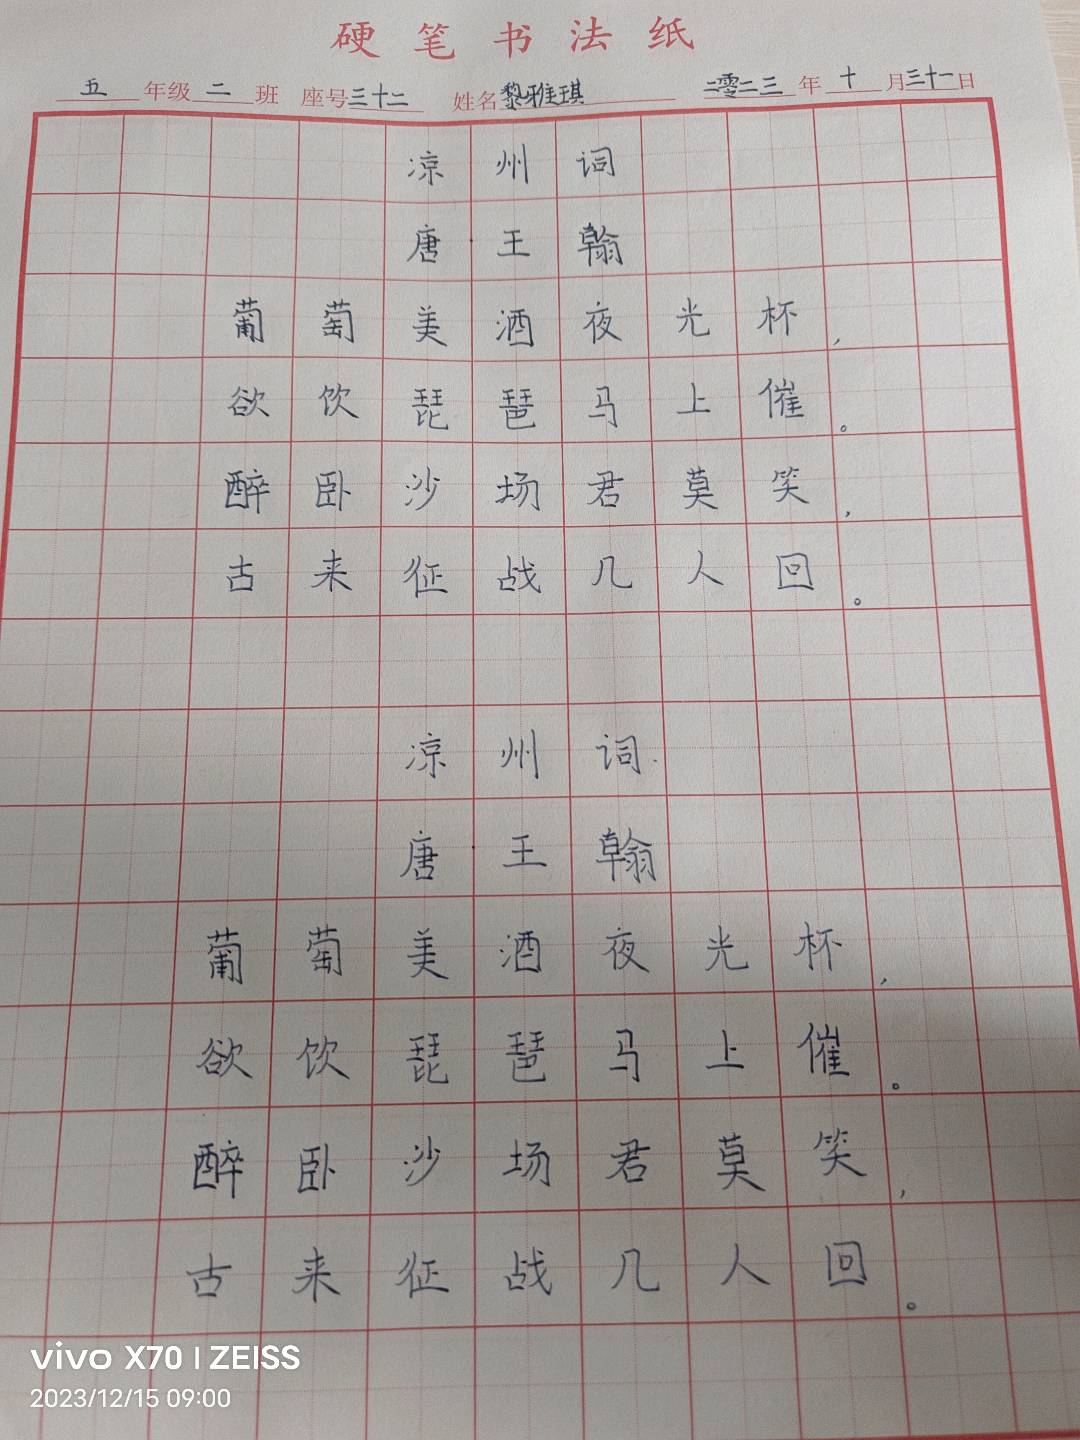 硬笔书法纸
五年级二班 座号三十二 姓名黎雅琪 二零二三年十月三十一日
凉州词
唐·王翰
葡萄美酒夜光杯，
欲饮琵琶马上催。
醉卧沙场君莫笑，
古来征战几人回。
凉州词
唐·王翰
葡萄美酒夜光杯，
欲饮琵琶马上催。
醉卧沙场君莫笑，
古来征战几人回。
vivo X70 | ZEISS
2023/12/15 09:00